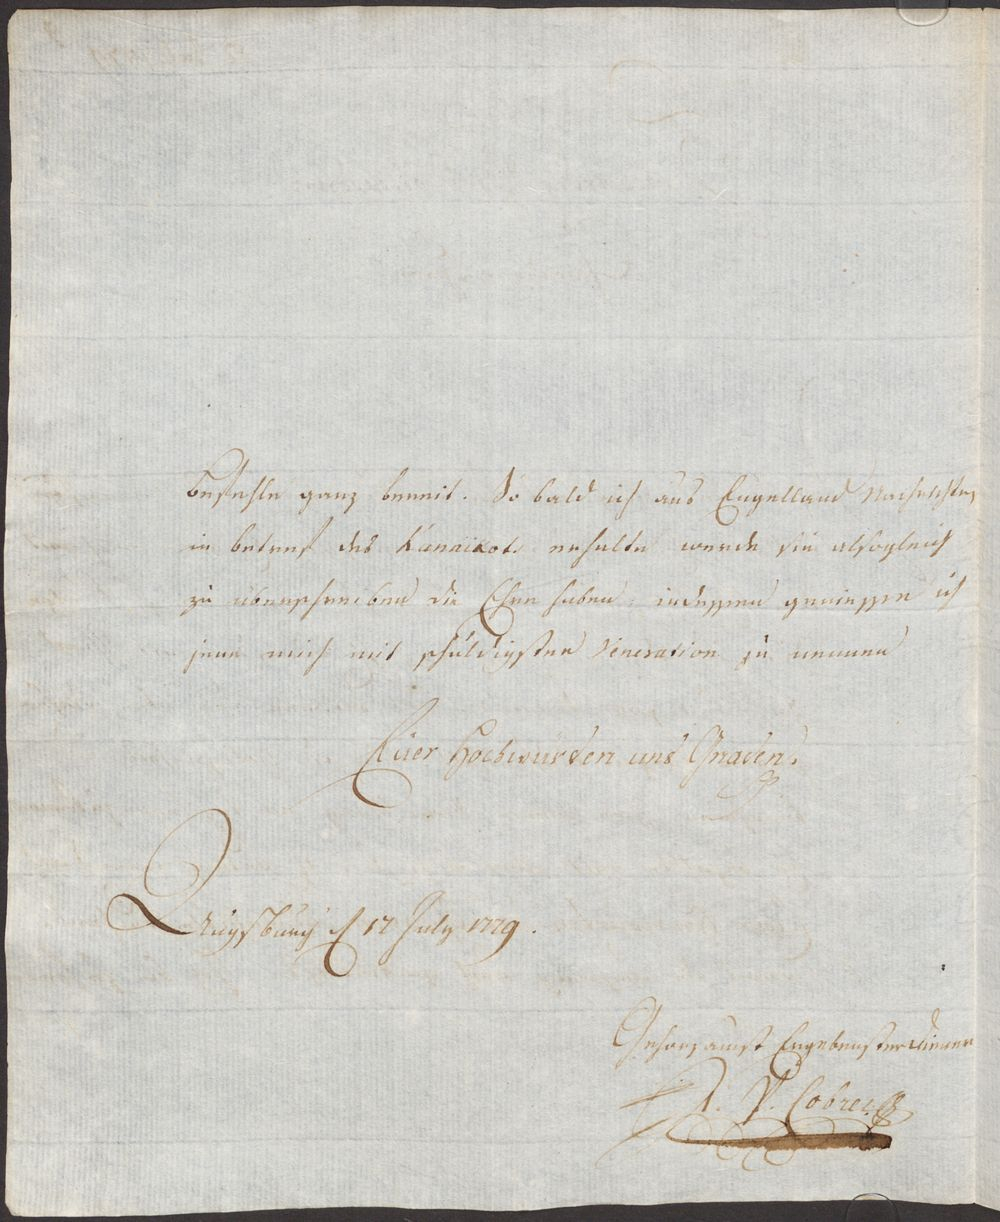 befehle ganz bereit. So bald ich aus Engelland Nachrichten
in betref des erhalte werde sie alsogleich
zu überschreiben die Ehre haben, indessen geniesse ich
jene mich mit schuldigster Veneration zu nennen
Euer Hochwürden und Gnaden.
Augsburg d 17 July 1779.
Gehorsamst Ergebenster Diener
J. P. Cobres